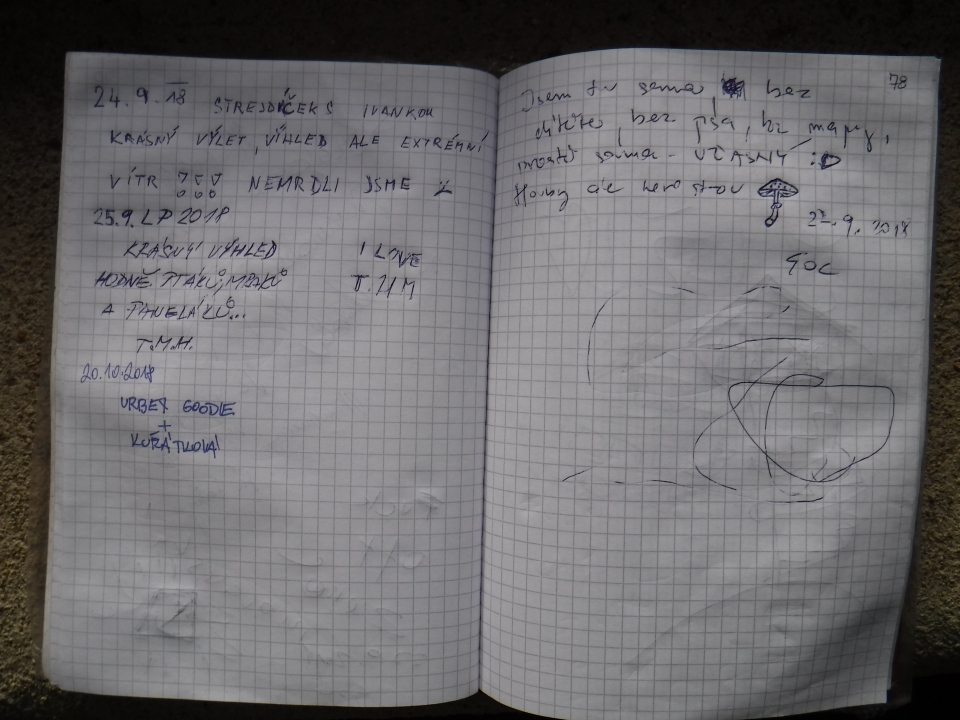 24.9.18 STREJDÍČEK S IVANKOU
KRÁSNÝ VÝLET, VÍHLED ALE EXTRÉMNÍ
VÍTR !!! NEMRDLI JSME
25.9. LP 2018
KRÁSNÝ VÝHLED
HODNĚ PTÁKŮ, MRAKŮ
A PANELÁKŮ...
T.M.H.
I LOVE
20.10.2018
URBEX GOODIE
+
KUŘÁTKOVÁ
78
Jsem tu sama, bez
dítěte, bez psa, bez mapy,
prostě sama - ÚŽASNÝ :D
Houby ale nerostou
9. 2018